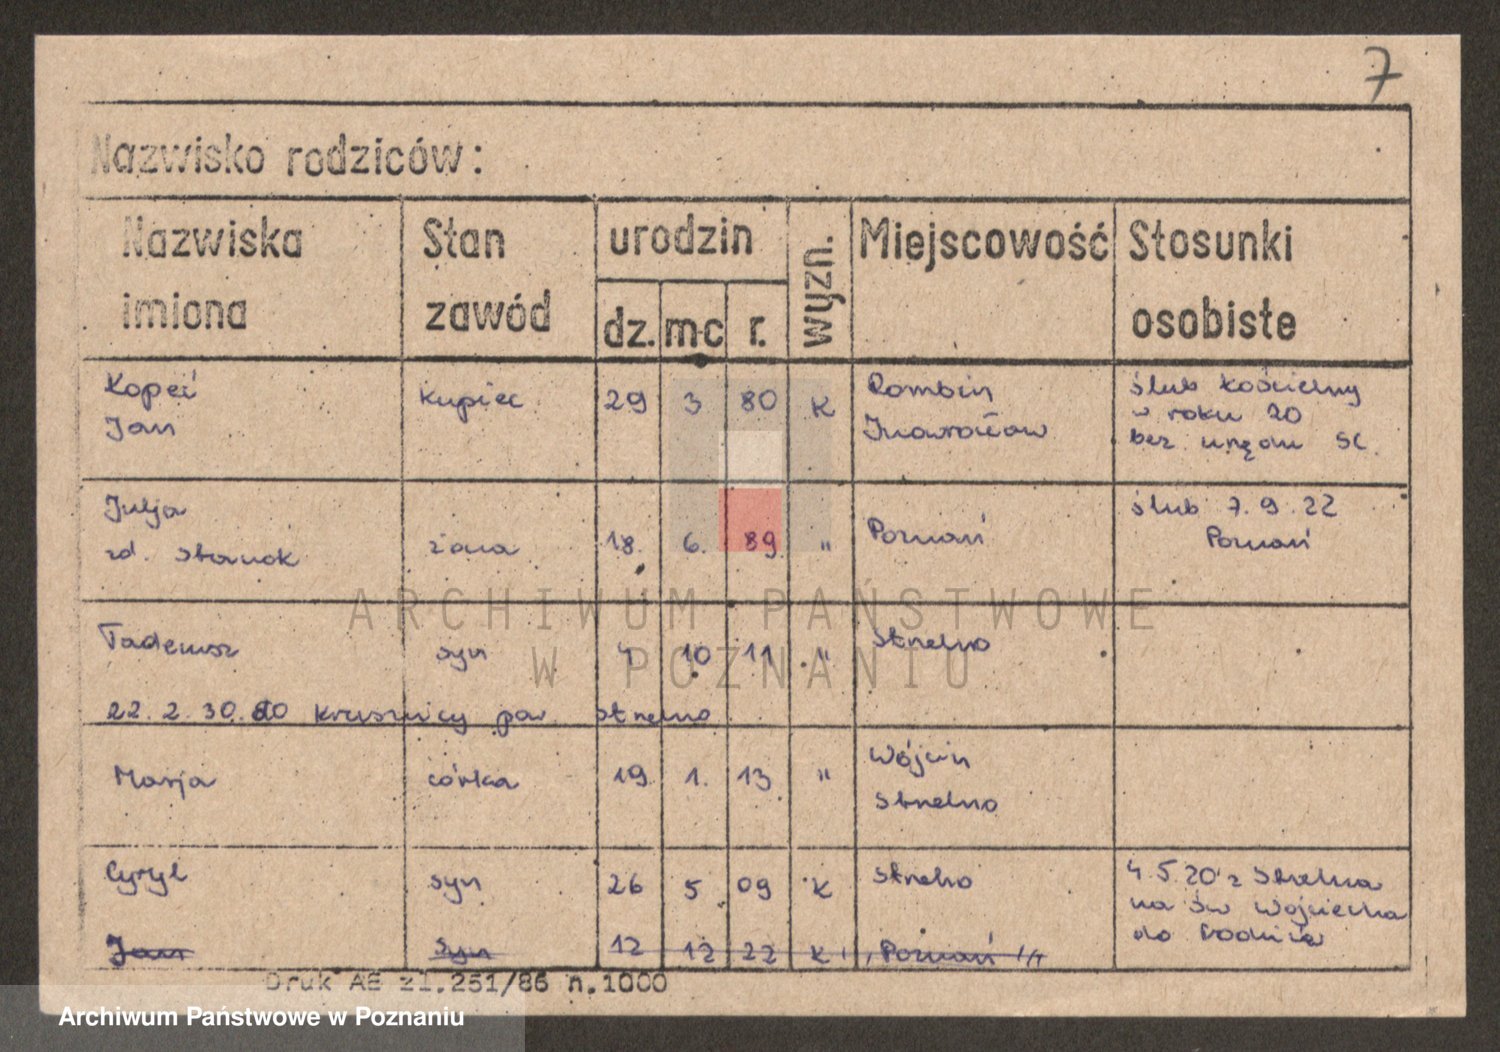 7
Nazwisko rodziców:
Nazwiska imiona
Stan zawód
urodzin
dz. m-c r.
wyzn.
Miejscowość
Stosunki osobiste
Kopeć Jan
kupiec
29 3 80 K
Rombin
Inowrocław
ślub kościelny
w roku 20
bez urzędu SC.
Julja
zd. Stanok
żona
18. 6. 89 "
Poznań
ślub 7.9.22
Poznań
Tadeusz
syn
4 10 11 "
Strzelno
22.2.30. do Kruszwicy pow. Strzelno
Marja
córka
19 1. 13 "
Wójcin
Strzelno
Cyryl
syn
26 5 09 K
Strzelno
4.5.20 z Strzelna
na św Wojciecha
do rodziców
Jan
syn
12 12 22 K Poznań
Druk AE zl.251/86 n.1000
ARCHIWUM PAŃSTWOWE
W POZNANIU
Archiwum Państwowe w Poznaniu